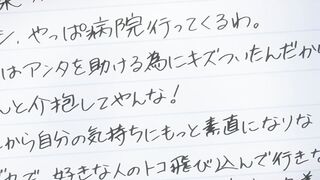 シ、やっぱ病院行ってくるわ。
はアンタを助ける為にキズついたんだか
んと介抱してやんな!
から自分の気持ちにもっと素直になりな
で、好きな人のトコ飛び込んで行きな